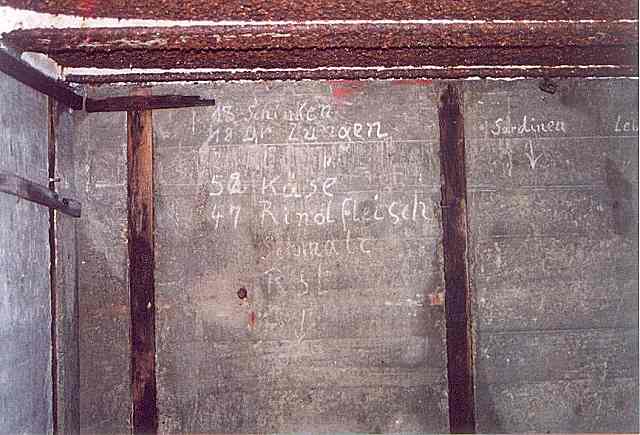 18 Schinken
18 gr Zungen
52 Käse
47 Rindfleisch
Schmalz
Sardinen